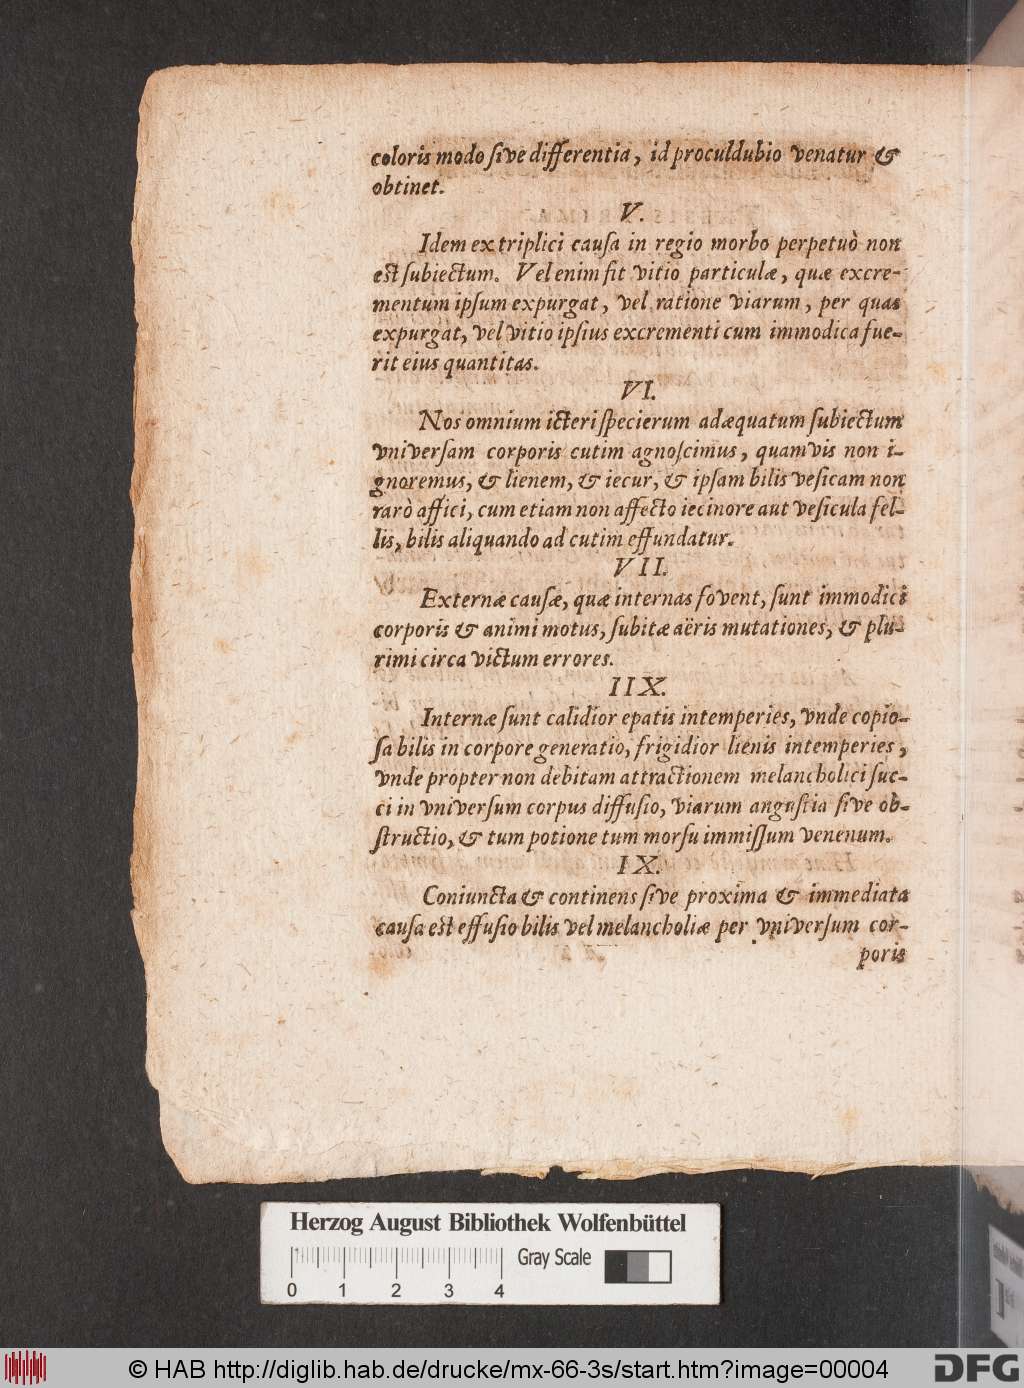 coloris modo ſive differentia, id proculdubio venatur &
obtinet.
V.
Idem ex triplici cauſa in regio morbo perpetuò non
est ſubiectum. Vel enim fit vitio particulæ, quæ excre-
mentum ipſum expurgat, vel ratione viarum, per quas
expurgat, vel vitio ipſius excrementi cum immodica fue-
rit eius quantitas.
VI.
Nos omnium icteri ſpecierum adæquatum ſubiectum
vniverſam corporis cutim agnoſcimus, quamvis non i-
gnoremus, & lienem, & iecur, & ipſam bilis veſicam non
rarò affici, cum etiam non affecto iecinore aut veſicula fel-
lis, bilis aliquando ad cutim effundatur.
VII.
Externæ cauſæ, quæ internas fovent, ſunt immodici
corporis & animi motus, ſubitæ aëris mutationes, & plu-
rimi circa victum errores.
IIX.
Internæ ſunt calidior epatis intemperies, vnde copio-
ſa bilis in corpore generatio, frigidior lienis intemperies,
vnde propter non debitam attractionem melancholici ſuc-
ci in vniverſum corpus diffuſio, viarum anguſtia ſive ob-
ſtructio, & tum potione tum morſu immiſſum venenum.
IX.
Coniuncta & continens ſive proxima & immediata
cauſa est effuſio bilis vel melancholiæ per vniverſum cor-
poris
Herzog August Bibliothek Wolfenbüttel
Gray Scale
0 1 2 3 4
© HAB http://diglib.hab.de/drucke/mx-66-3s/start.htm?image=00004
DFG